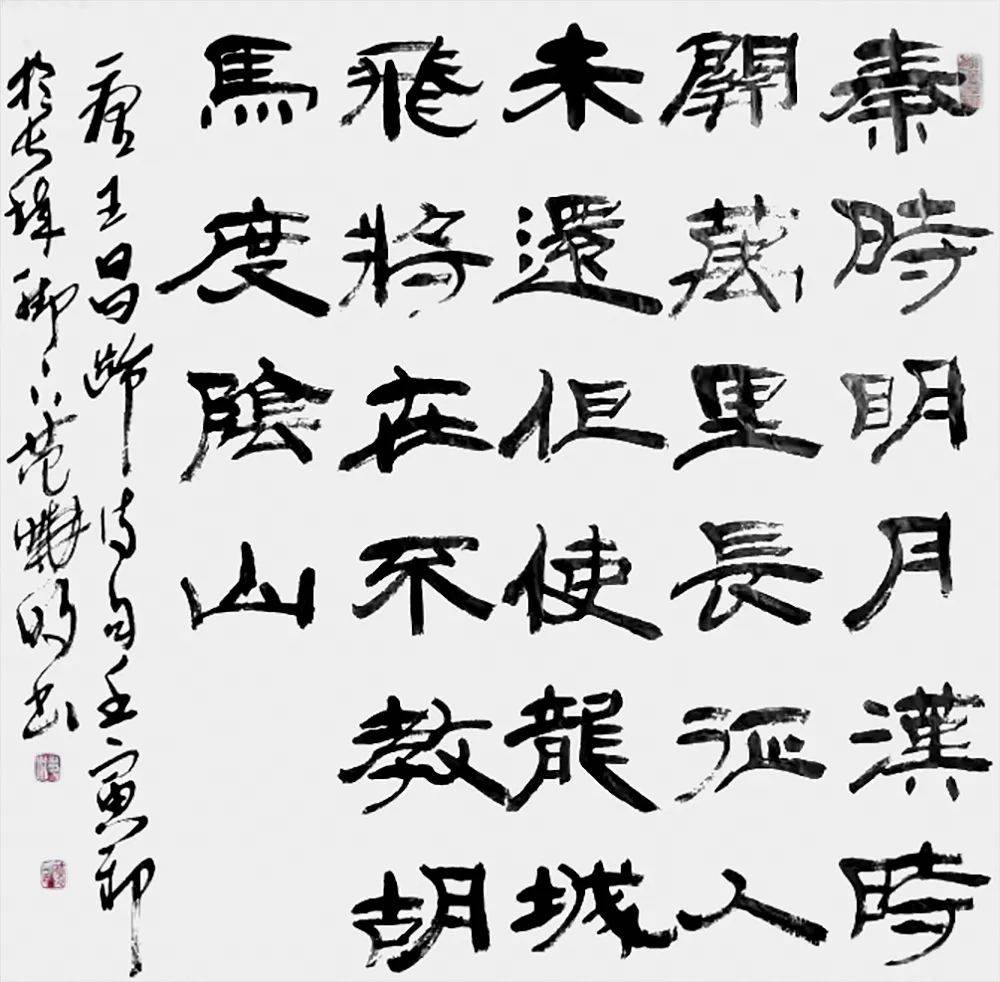 秦時明月漢時
關萬里長征人
未還但使龍城
飛將在不教胡
馬度陰山
唐王昌齡詩句壬寅
於長 范 明書